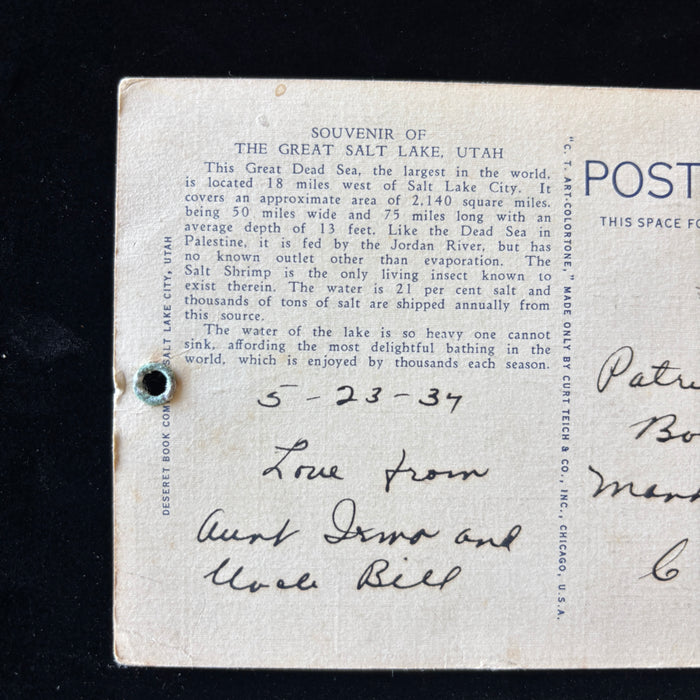 SOUVENIR OF
THE GREAT SALT LAKE, UTAH
This Great Dead Sea, the largest in the world,
is located 18 miles west of Salt Lake City. It
covers an approximate area of 2,140 square miles,
being 50 miles wide and 75 miles long with an
average depth of 13 feet. Like the Dead Sea in
Palestine, it is fed by the Jordan River, but has
no known outlet other than evaporation. The
Salt Shrimp is the only living insect known to
exist therein. The water is 21 per cent salt and
thousands of tons of salt are shipped annually from
this source.
The water of the lake is so heavy one cannot
sink, affording the most delightful bathing in the
world, which is enjoyed by thousands each season.
5-23-34
Love from
Aunt Irma and
Uncle Bill
DESERET BOOK COM SALT LAKE CITY, UTAH
"C. T. ART-COLORTONE," MADE ONLY BY CURT TEICH & CO., INC., CHICAGO, U.S.A.
POST
THIS SPACE FO
Patri
Bo
C